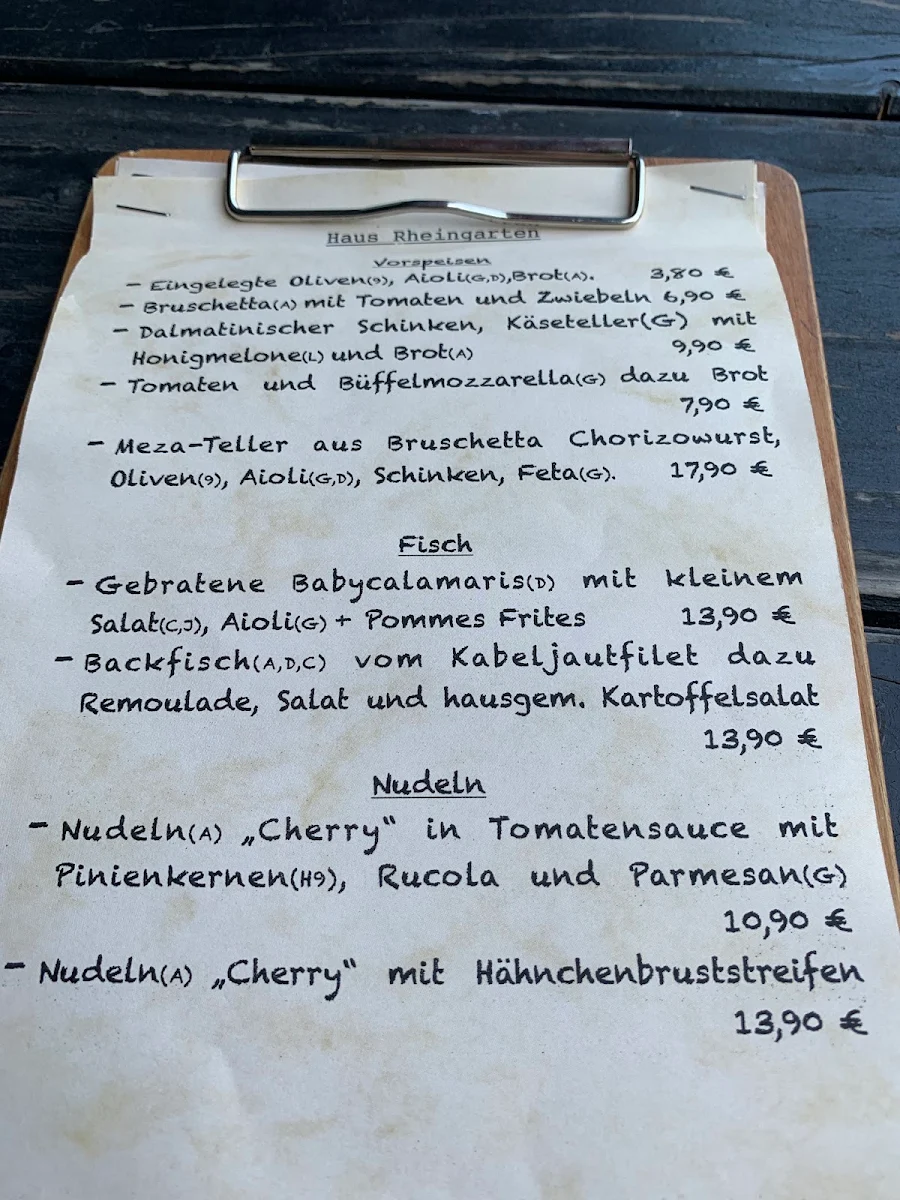 Haus Rheingarten
Vorspeisen
- Eingelegte Oliven(9), Aioli(G,D),Brot(A). 3,80 €
- Bruschetta(A) mit Tomaten und Zwiebeln 6,90 €
- Dalmatinischer Schinken, Käseteller(G) mit
Honigmelone(L) und Brot(A) 9,90 €
- Tomaten und Büffelmozzarella(G) dazu Brot
7,90 €
- Meza-Teller aus Bruschetta Chorizowurst,
Oliven(9), Aioli(G,D), Schinken, Feta(G). 17,90 €
Fisch
- Gebratene Babycalamaris(D) mit kleinem
Salat(C,J), Aioli(G) + Pommes Frites 13,90 €
- Backfisch(A,D,C) vom Kabeljautfilet dazu
Remoulade, Salat und hausgem. Kartoffelsalat
13,90 €
Nudeln
- Nudeln(A) „Cherry“ in Tomatensauce mit
Pinienkernen(H9), Rucola und Parmesan(G)
10,90 €
- Nudeln(A) „Cherry“ mit Hähnchenbruststreifen
13,90 €